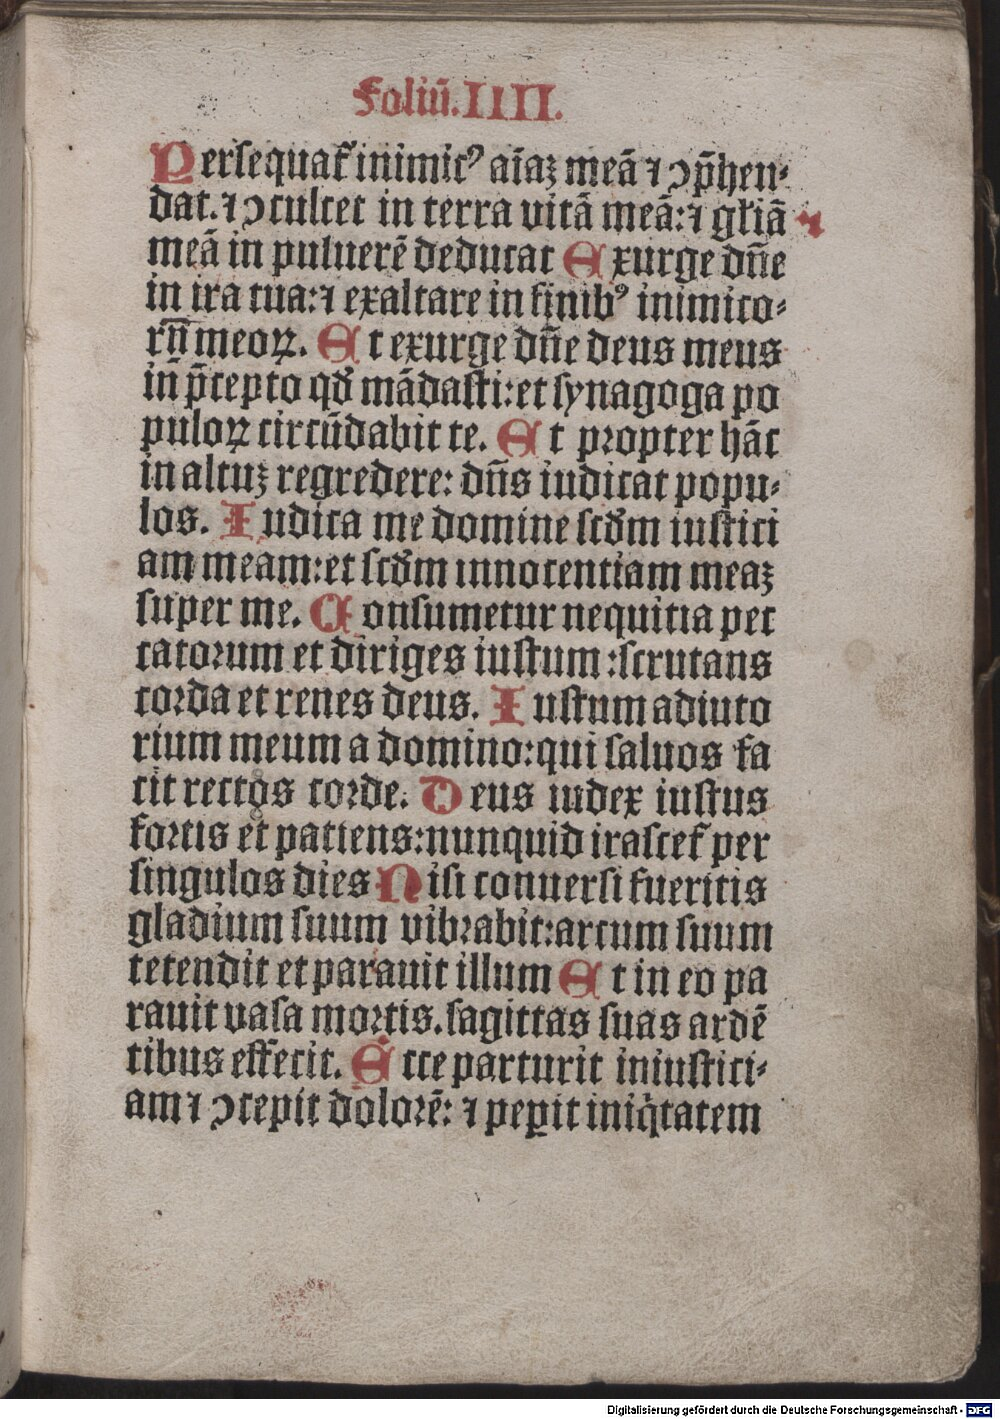 Foliū.IIII.
Persequat᷑ inimicꝰ aīaꝫ meā ⁊ ↄp̄hen⸗
dat.⁊ ↄculcet in terra vitā meā:⁊ gl̄iā
meā in puluerē deducat Exurge dn̄e
in ira tua:⁊ exaltare in finibꝰ inimico⸗
rū meoꝝ. Et exurge dn̄e deus meus
in p̄cepto qd̄ mādasti:et synagoga po
puloꝝ circūdabit te. Et propter hāc
in altuꝫ regredere: dn̄s iudicat popu⸗
los. Iudica me domine scd̄m iustici
am meam:et scd̄m innocentiam meaꝫ
super me. Consumetur nequitia pec
catorum et diriges iustum :scrutans
corda et renes deus. Iustum adiuto
rium meum a domino:qui saluos fa
cit rectos corde. Deus iudex iustus
fortis et patiens:nunquid irascet᷑ per
singulos dies Nisi conuersi fueritis
gladium suum vibrabit:arcum suum
tetendit et parauit illum Et in eo pa
rauit vasa mortis.sagittas suas ardē
tibus effecit. Ecce parturit iniustici⸗
am ⁊ ↄcepit dolorē: ⁊ peꝑit iniq̄tatem
Digitalisierung gefördert durch die Deutsche Forschungsgemeinschaft - DFG